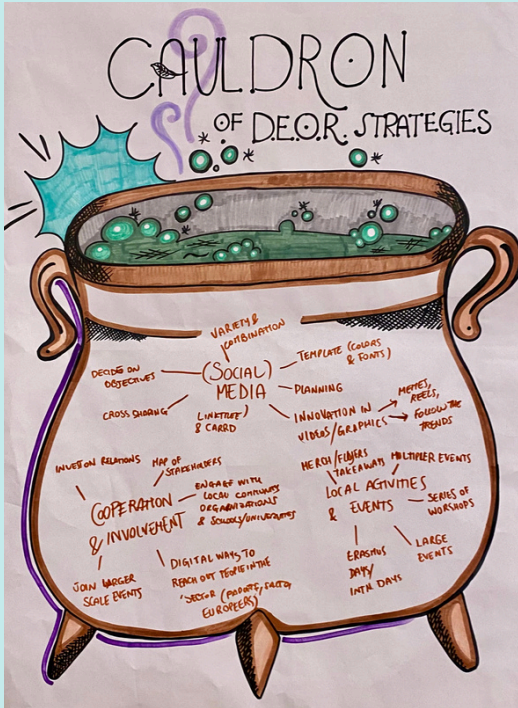 CAULDRON
OF D.E.O.R. STRATEGIES
VARIETY &
COMBINATION
DECIDE ON
OBJECTIVES
(SOCIAL)
MEDIA
TEMPLATE (COLORS
& FONTS)
PLANNING
CROSS SHARING
LINKTREE)
& CARRD
INNOVATION IN
VIDEOS/GRAPHICS
MEMES,
REELS,
FOLLOW THE
TRENDS
INVEST ON RELATIONS
MAP OF
STAKEHOLDERS
COOPERATION
& INVOLVEMENT
ENGAGE WITH
LOCAL COMMUNITY
ORGANIZATIONS
& SCHOOL/UNIVERSITIES
JOIN LARGER
SCALE EVENTS
DIGITAL WAYS TO
REACH OUT PEOPLE IN THE
SECTOR
EUROPEERS)
MERCH/FLYERS
TAKEAWAYS
MULTIPLIER EVENTS
LOCAL ACTIVITIES
& EVENTS
SERIES OF
WORSHOPS
ERASMUS
DAYS/
INTN. DAYS
LARGE
EVENTS